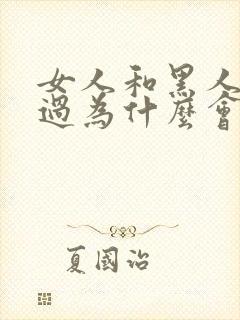 女人和黑人
過為什麼會
夏國治